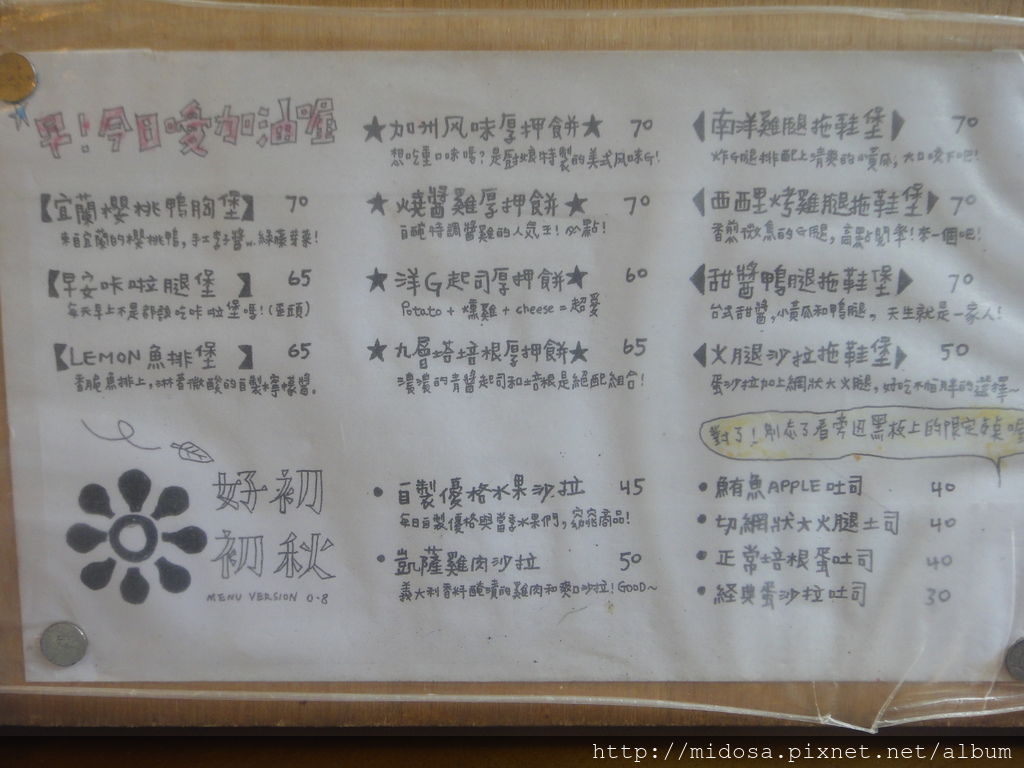 早!今日嗳加油喔
【宜蘭櫻桃鴨胸堡】 70
來自宜蘭的櫻桃鴨,手工李子醬...綠藤芽菜!
【早安咔啦腿堡 】 65
每天早上不是都該吃咔啦堡嗎!(歪頭)
【LEMON魚排堡 】 65
香脆魚排上,淋著微酸的自製檸檬醬。
好初
初秋
MENU VERSION 0.8
★加州风味厚押餅★ 70
想吃重口味嗎?是廚娘特製的美式风味G!
★燒醬雞厚押餅★ 70
自醃特調醬雞的人気王!必點!
★洋G起司厚押餅★ 60
Potato + 燻雞 + cheese = 超愛
★九層塔培根厚押餅★ 65
濃濃的青醬起司和培根是絕配組合!
• 自製優格水果沙拉 45
每日自製優格與當季水果們,窈窕商品!
• 凱薩雞肉沙拉 50
義大利香料醃漬的雞肉和爽口沙拉!GOOD~
◀南洋雞腿拖鞋堡▶ 70
炸G腿排配上清爽的小黃瓜,大口咬下吧!
◀西西里烤雞腿拖鞋堡▶ 70
香煎微焦的G腿,高點閱率!來一個吧!
◀甜醬鴨腿拖鞋堡▶ 70
台式甜醬,小黃瓜和鴨腿,天生就是一家人!
◀火腿沙拉拖鞋堡▶ 50
蛋沙拉加上網狀大火腿,好吃不怕胖的選擇~
對了!別忘了看旁边黑板上的限定餐桌喔
• 鮪魚APPLE吐司 40
• 切網狀大火腿土司 40
• 正常培根蛋吐司 40
• 経典蛋沙拉吐司 30
http://midosa.pixnet.net/album